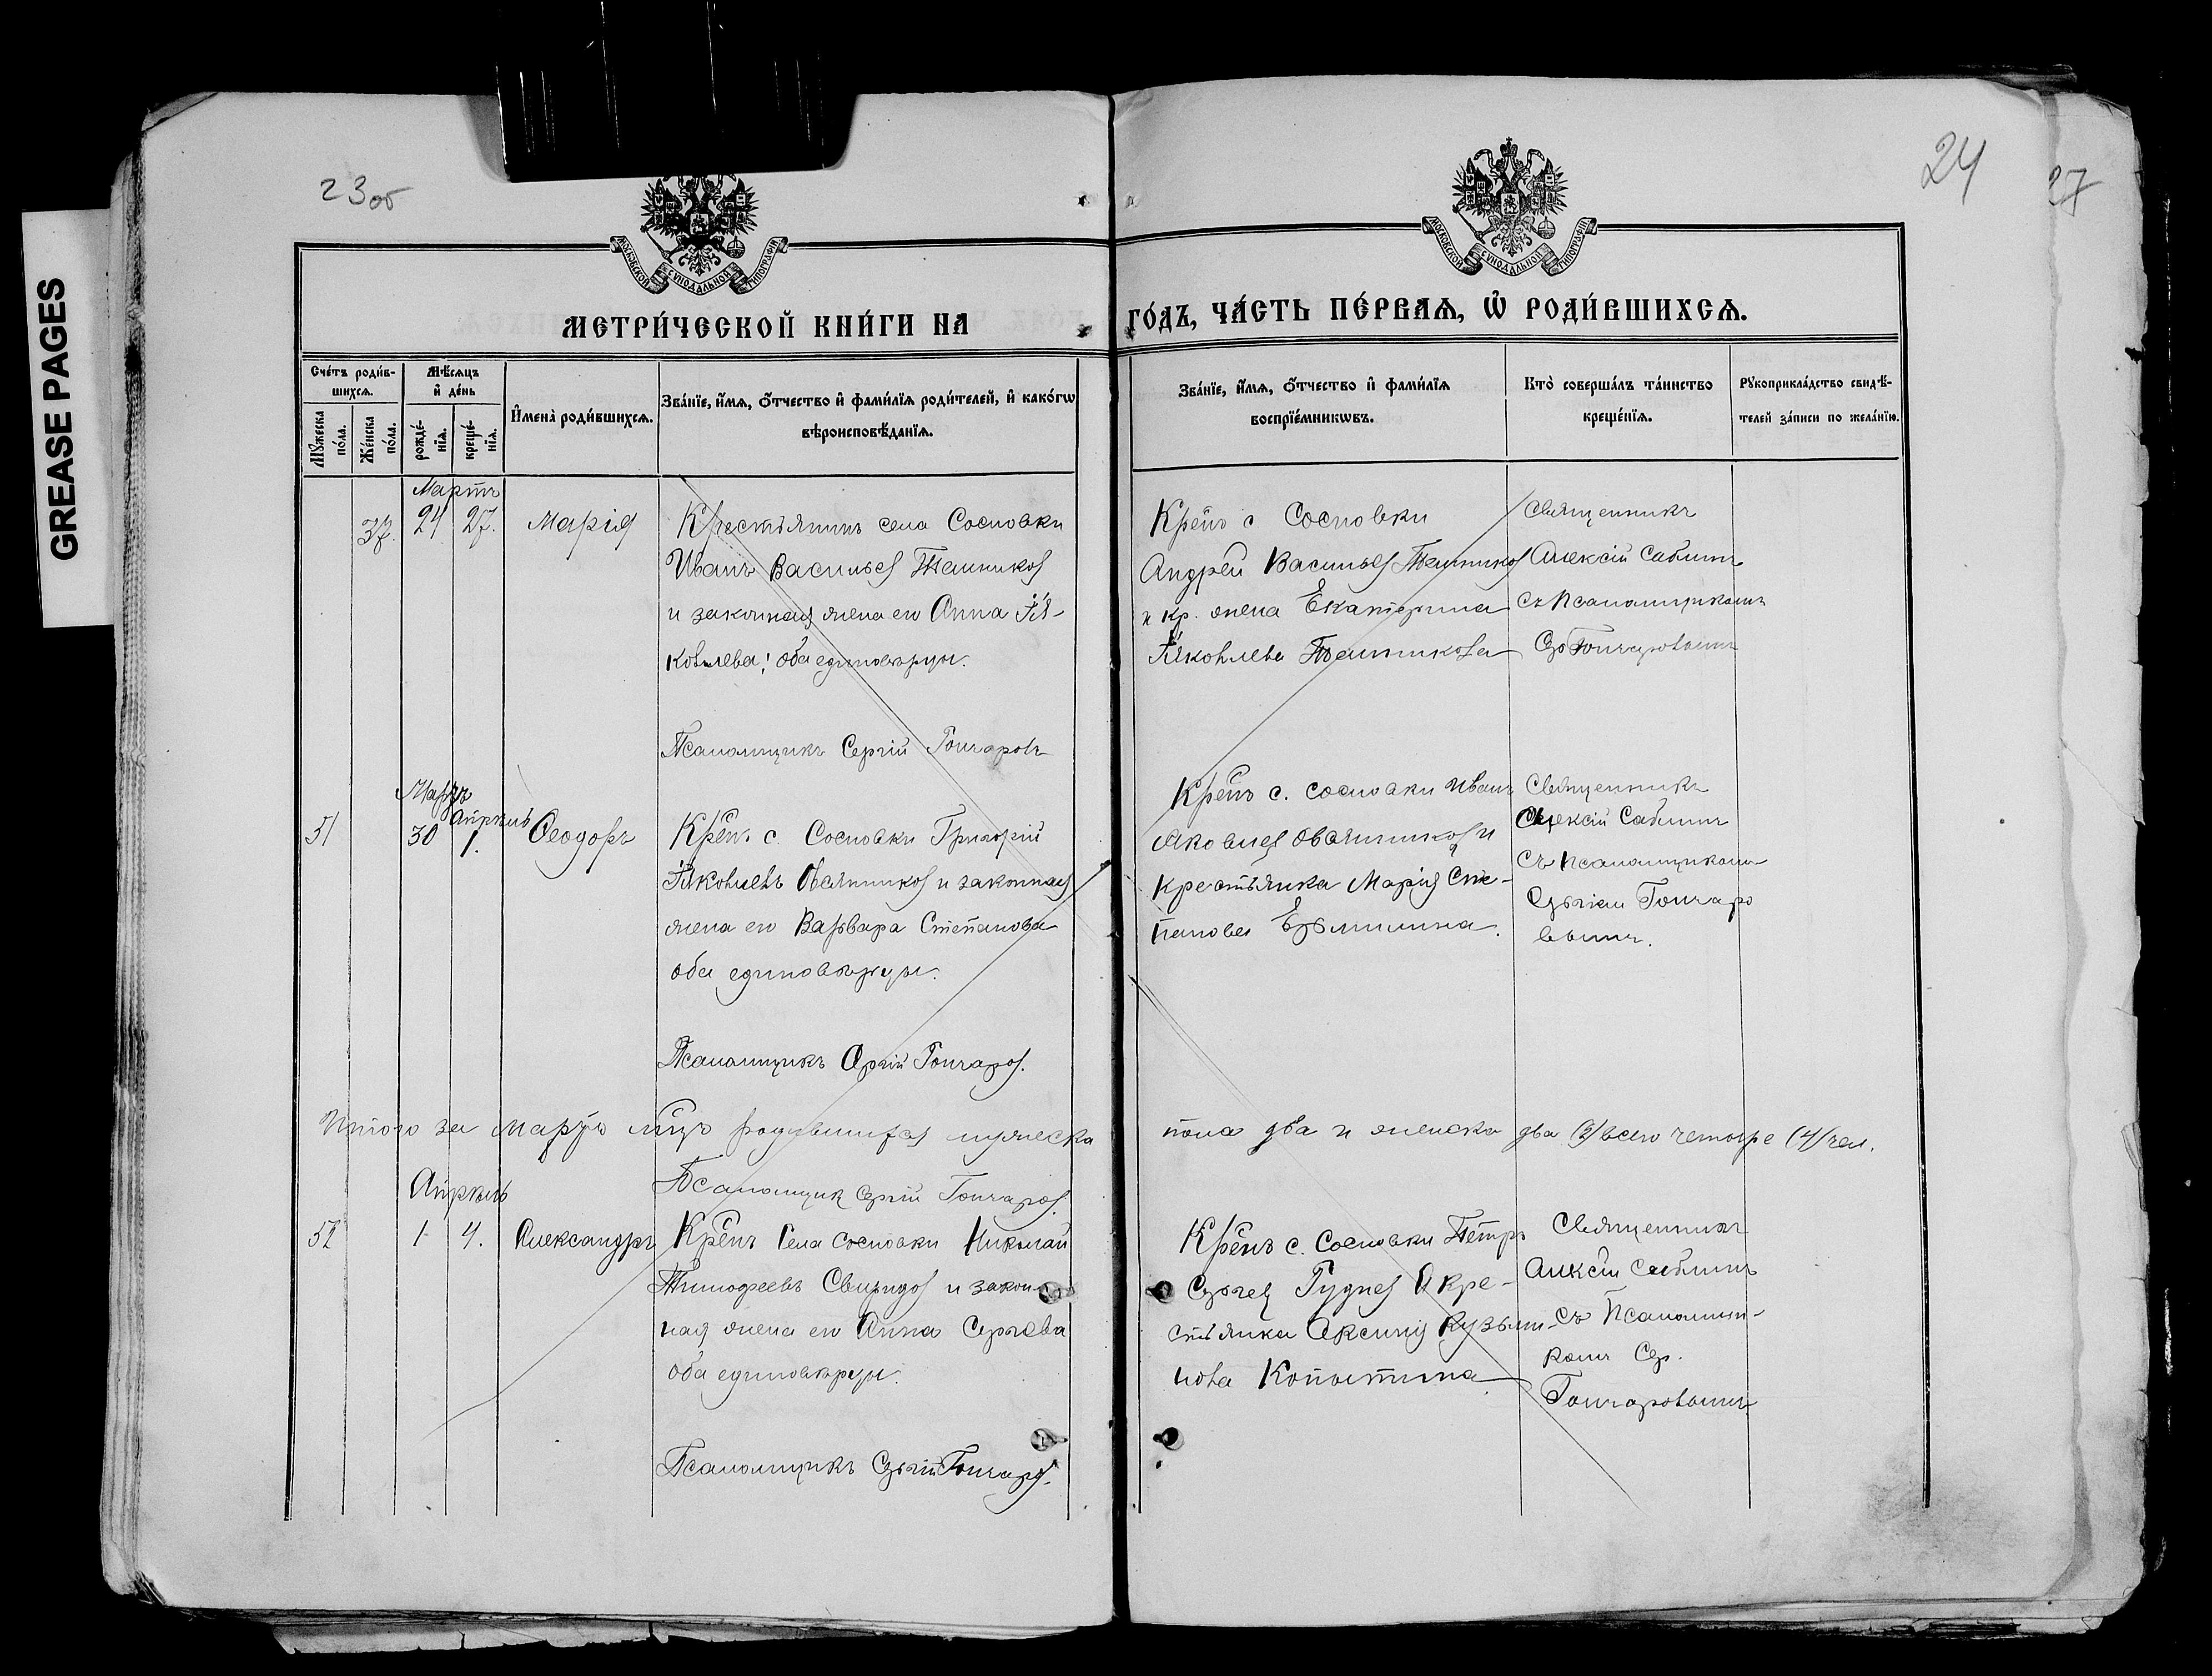 GREASE PAGES
23об
24
27
МОСКОВСКОЙ СѴНОДАЛЬНОЙ ТИПОГРАФІИ
МОСКОВСКОЙ СѴНОДАЛЬНОЙ ТИПОГРАФІИ
МЕТРИ́ЧЕСКОЙ КНИ́ГИ НА
ГО́ДЪ, ЧА́СТЬ ПЕ́РВАѦ, Ѽ РОДИ́ВШИХСѦ.
Сче́тъ роди́в-
шихсѧ.
Мꙋ́жеска
по́ла.
Же́нска
по́ла.
Мѣ́сѧцъ
и҆ де́нь
рожде́-
нїѧ.
креще́-
нїѧ.
И҆мена̀ роди́вшихсѧ.
Зва́нїе, и҆́мѧ, ѻ҆́тчество и҆ фами́лїѧ роди́телей, и҆ како́гѡ
вѣроисповѣ́данїѧ.
Зва́нїе, и҆́мѧ, ѻ҆́тчество и҆ фами́лїѧ
воспрїе́мникѡвъ.
Кто̀ соверша́лъ та́инство
креще́нїѧ.
Рꙋкоприкла́дство свидѣ́-
телей за́писи по жела́нїю.
Мартъ
37. 24 27. Марія
Крестьянинъ села Сосновки
Иванъ Васильев
и законная жена его Анна Iя-
ковлева; оба единоверцы.
Псаломщикъ Сергій Гончаровъ
Крен с Сосновки
Андрей Васильев
и кр. жена Екатерина
Яковлева
Священникъ
Алексій Саблинъ
съ Псаломщикомъ
Гончаровымъ
Мартъ
Апрель
51 30 1. Ѳеодоръ
Крен. с. Сосновки Григорій
Яковлевъ Овчинников и законная
жена его Варвара Степанова
оба единоверцы.
Псаломщикъ Сергій Гончаров.
Крен с. Сосновки Иванъ
Яковлев Овчинников и
Крестьянка Марія Сте-
панова
Священникъ
Алексій Саблинъ
съ Псаломщикомъ
Сергіем Гончаро
вымъ.
Итого за Мартъ мцъ родившихся мужеска
пола два и женска два (2) всего четыре (4) чел.
Псаломщик Сергій Гончаров.
Апрель
52 1 4. Александръ
Крен села Сосновки Николай
Тимофеевъ Свиридов и закон-
ная жена его Анна Сергеева
оба единоверцы.
Псаломщикъ Сергій Гончаров.
Крен с. Сосновки Петръ
Сергеев Гуднев и кре-
стьянка Аксинія Кузьми-
нова Копытина
Священникъ
Алексій Саблинъ
съ Псаломщи-
комъ Сер.
Гончаровымъ